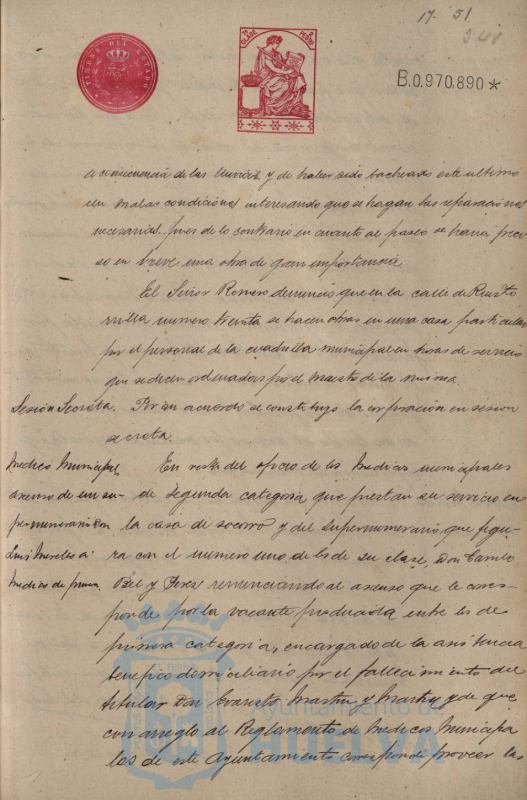 17. 51.
348
TIMBRE DEL ESTADO
11ª CLASE
B.0.970.890*
a consecuencia de las lluvias y de haber sido bacheado este ultimo
en malas condiciones interesando que se hagan las reparaciones
necesarias pues de lo contrario en cuanto al paseo se haria preci
so en breve una obra de gran importancia.
El Señor Romero denunció que en la calle de
numero treinta se hacen obras en una casa particular
por el personal de la cuadrilla municipal en horas de servicio
que se dicen ordenadas por el maestro de la misma.
Sesión Secreta. Por un acuerdo se constituyó la corporación en sesion
secreta.
Medico Municipal,
ascenso de un su-
pernumerario Don
Luis a
Medico de
En vista del oficio de los Medicos municipales
de segunda categoria que prestan su servicio en
la casa de socorro y del supernumerario que figu-
ra con el numero uno de los de su clase, Don Camilo
Bel y renunciando al ascenso que le corres-
ponde por la vacante producida entre los de
primera categoria, encargado de la asistencia
benefico domiciliario por el fallecimiento del
titular Don Evaristo Martin y y de que
con arreglo al Reglamento de Medicos Municipa
les de este Ayuntamiento corresponde proveer las
Ayuntamiento de
HUELVA